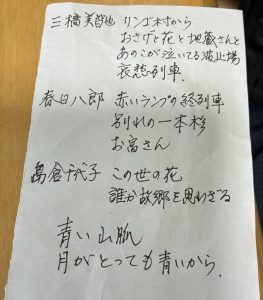 三橋美智也 リンゴ村から
おさげと花と地蔵さんと
あのこが泣いてる波止場
哀愁列車
春日八郎 赤いランプの終列車
別れの一本杉
お富さん
島倉千代子 この世の花
誰か故郷を思わざる
青い山脈
月がとっても青いから.